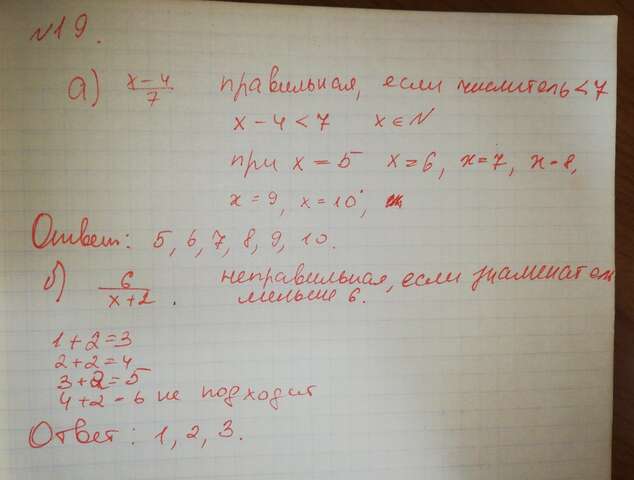 №19.
а) x-4/7 правильная, если числитель<7
x-4<7 x∈N
при x=5 x=6, x=7, x=8,
x=9, x=10,
Ответ: 5, 6, 7, 8, 9, 10.
б) 6/x+2. неправильная, если знаменатель
меньше 6.
1+2=3
2+2=4
3+2=5
4+2=6 не подходит
Ответ: 1, 2, 3.